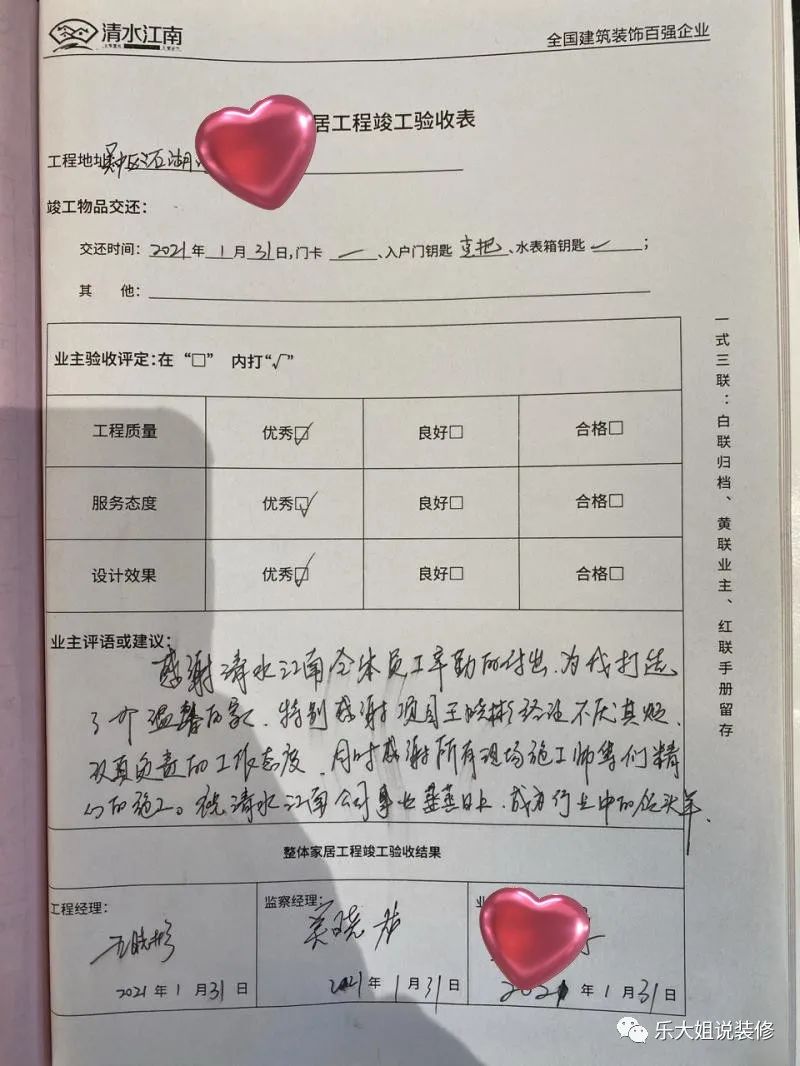 清水江南
全国建筑装饰百强企业
居工程竣工验收表
工程地址 吴中区石湖
竣工物品交还:
交还时间: 2021年 1月 31日,门卡 一、入户门钥匙 壹把、水表箱钥匙 ;
其 他:
业主验收评定:在“□” 内打“√”
工程质量 优秀☑ 良好□ 合格□
服务态度 优秀☑ 良好□ 合格□
设计效果 优秀☑ 良好□ 合格□
业主评语或建议:
感谢清水江南全体员工辛勤的付出,为我打造
了个温馨的家,特别感谢项目王晓彬经理不厌其烦,
认真负责的工作态度,同时感谢所有现场施工师傅们精
心的施工。祝清水江南公司事业蒸蒸日上,成为行业中的领头羊.
整体家居工程竣工验收结果
工程经理:
王晓彬
2021年 1月 31日
监察经理:
吴晓
2021年 1月 31日
业
2021年 1月 31日
一式三联:白联归档、黄联业主、红联手册留存
乐大姐说装修